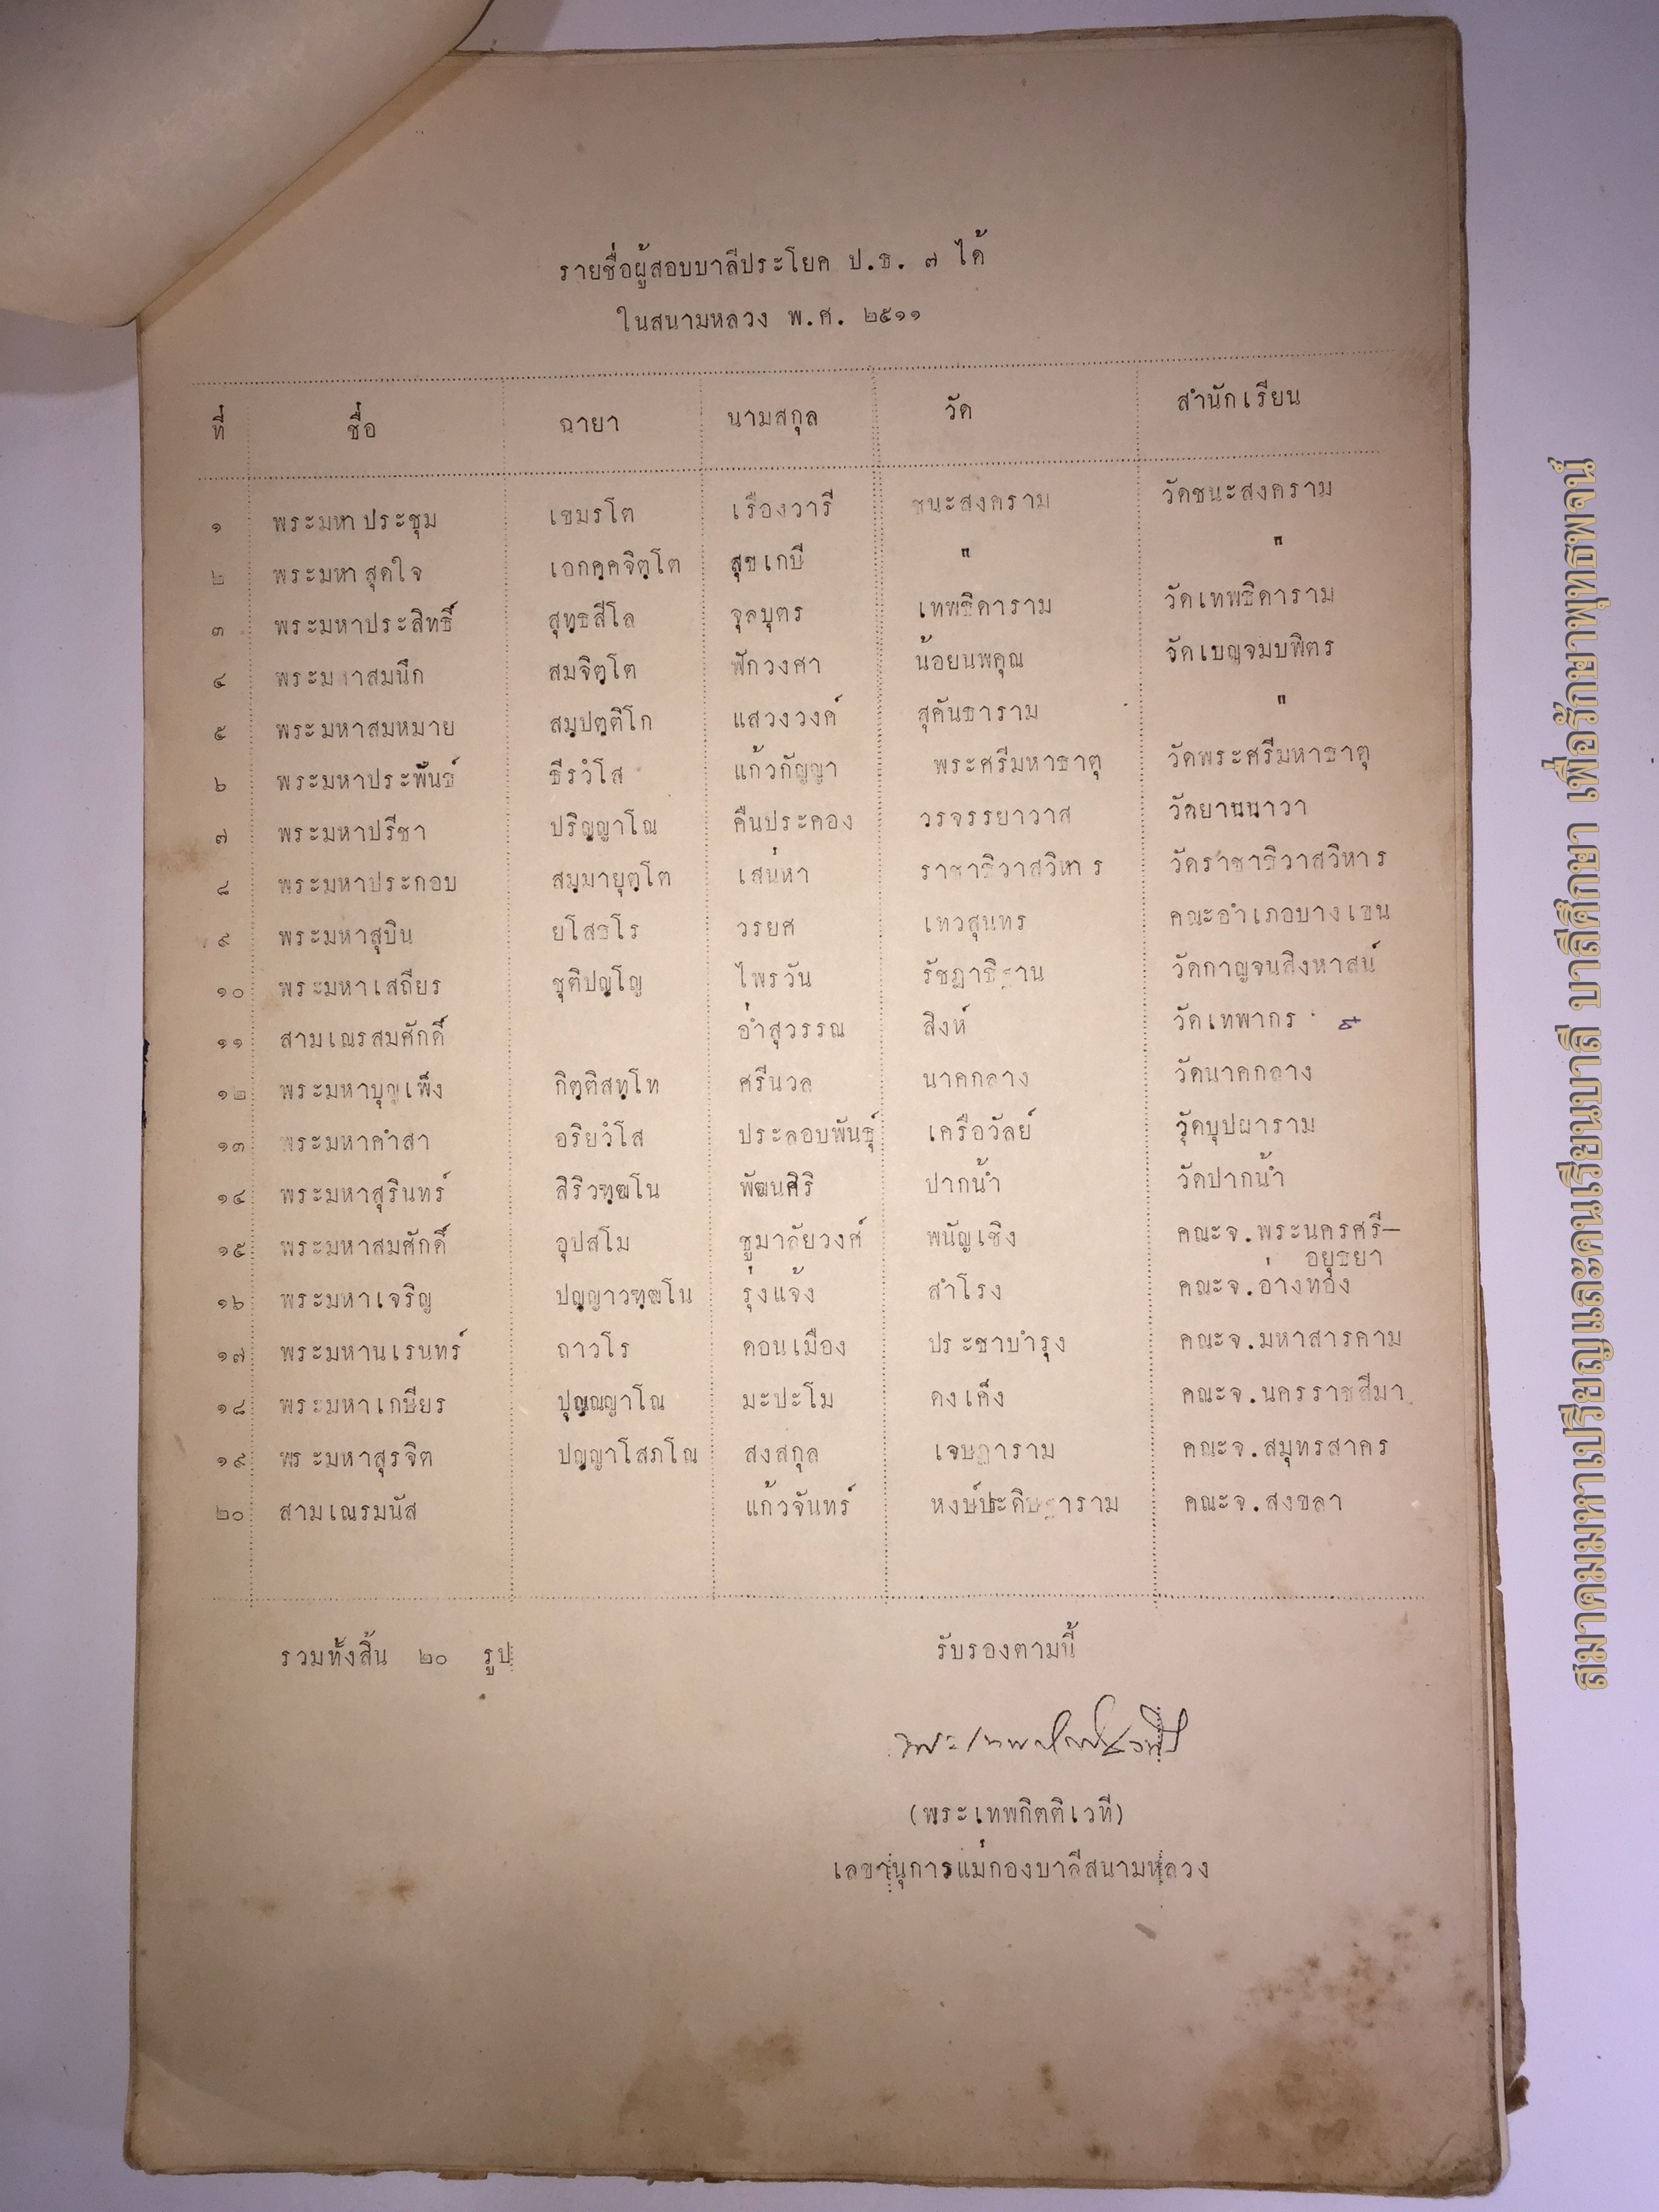 รายชื่อผู้สอบบาลีประโยค ป.ธ. ๗ ได้
ในสนามหลวง พ.ศ. ๒๕๑๑
ที่ ชื่อ ฉายา นามสกุล วัด สำนักเรียน
๑ พระมหาประชุม เขมรโต เรืองวารี ชนะสงคราม วัดชนะสงคราม
๒ พระมหาสุดใจ เอกคฺคจิตฺโต สุขเกษี " "
๓ พระมหาประสิทธิ์ สุทฺธสีโล จุลบุตร เทพธิดาราม วัดเทพธิดาราม
๔ พระมหาสมนึก สมจิตฺโต ฟักวงศา น้อยนพคุณ วัดเบญจมบพิตร
๕ พระมหาสมหมาย สมฺปตฺติโก แสวงวงค์ สุคันธาราม "
๖ พระมหาประพันธ์ ธีรวํโส แก้วกัญญา พระศรีมหาธาตุ วัดพระศรีมหาธาตุ
๗ พระมหาปรีชา ปริญฺญาโณ คืนประคอง วรจรรยาวาส วัดยานนาวา
๘ พระมหาประกอบ สมฺมายุตฺโต เสน่หา ราชาธิวาสวิหาร วัดราชาธิวาสวิหาร
๙ พระมหาสุบิน ยโสธโร วรยศ เทวสุนทร คณะอำเภอบางเขน
๑๐ พระมหาเสถียร ชุติปญฺโญ ไพรวัน รัชฎาธิฐาน วัดกาญจนสิงหาสน์
๑๑ สามเณรสมศักดิ์ อ่ำสุวรรณ สิงห์ วัดเทพากร
๑๒ พระมหาบุญเพ็ง กิตฺติสทฺโท ศรีนวล นาคกลาง วัดนาคกลาง
๑๓ พระมหาคำสา อริยวํโส ประลอบพันธุ์ เครือวัลย์ วัดบุปผาราม
๑๔ พระมหาสุรินทร์ สิริวฑฺฒโน พัฒนศิริ ปากน้ำ วัดปากน้ำ
๑๕ พระมหาสมศักดิ์ อุปสโม ชูมาลัยวงศ์ พนัญเชิง คณะจ.พระนครศรี–
อยุธยา
๑๖ พระมหาเจริญ ปญฺญาวฑฺฒโน รุ่งแจ้ง สำโรง คณะจ.อ่างทอง
๑๗ พระมหานเรนทร์ ถาวโร ดอนเมือง ประชาบำรุง คณะจ.มหาสารคาม
๑๘ พระมหาเกษียร ปุญฺญาโณ มะปะโม ดงเค็ง คณะจ.นครราชสีมา
๑๙ พระมหาสุรจิต ปญฺญาโสภโณ สงสกุล เจษฎาราม คณะจ.สมุทรสาคร
๒๐ สามเณรมนัส แก้วจันทร์ หงษ์ประดิษฐาราม คณะจ.สงขลา
รวมทั้งสิ้น ๒๐ รูป
รับรองตามนี้
(พระเทพกิตติเวที)
เลขานุการแม่กองบาลีสนามหลวง
สมาคมมหาเปรียญและคนเรียนบาลี บาลีศึกษา เพื่อรักษาพุทธพจน์